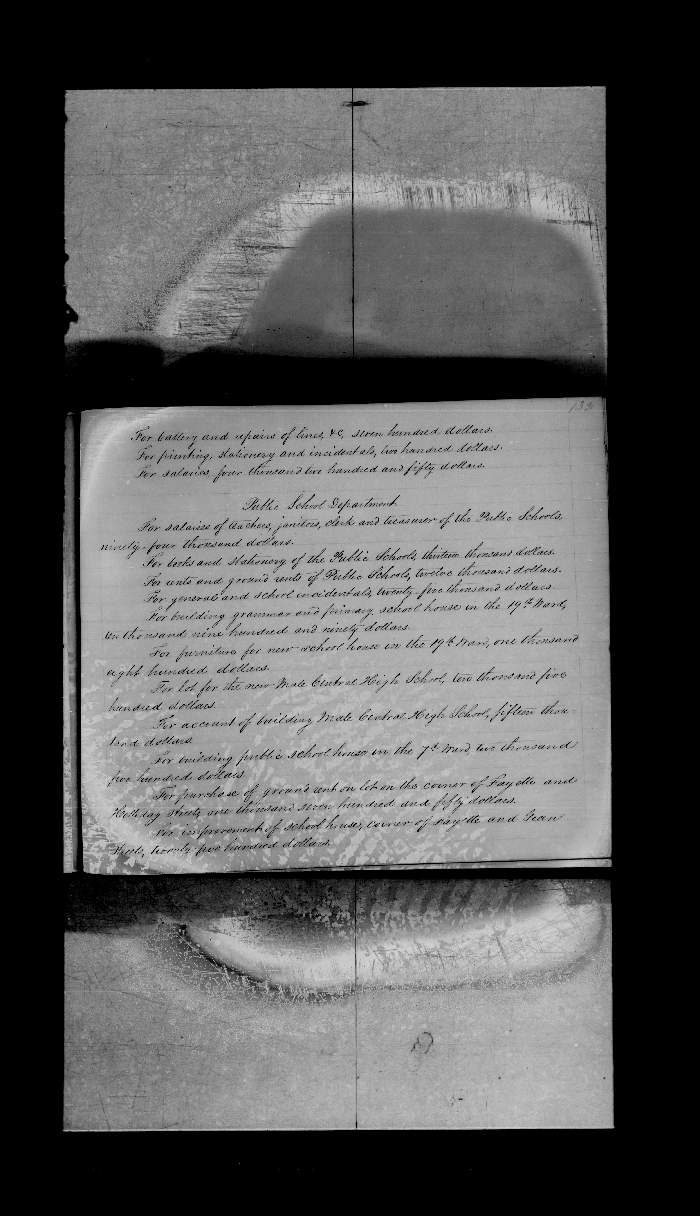 For battery and repairs of lines, &c, seven hundred dollars.
For printing, stationery and incidentals, two hundred dollars.
For salaries, four thousand two hundred and fifty dollars.
Public School Department.
For salaries of teachers, janitors, clerk and treasurer of the Public Schools,
ninety-four thousand dollars.
For books and stationery of the Public Schools, thirteen thousand dollars.
For rents and ground rents of Public Schools, twelve thousand dollars.
For general and school incidentals, twenty-five thousand dollars.
For building grammar and primary school house in the 19th Ward,
ten thousand nine hundred and ninety dollars.
For furniture for new school house in the 19th Ward, one thousand
eight hundred dollars.
For lot for the new Male Central High School, two thousand five
hundred dollars.
For account of building Male Central High School, fifteen thou-
sand dollars.
For building public school house in the 7th Ward, two thousand
five hundred dollars.
For purchase of ground rent on lot on the corner of Fayette and
Holliday streets, one thousand seven hundred and fifty dollars.
For improvement of school house, corner of Fayette and Green
streets, twenty-five hundred dollars.